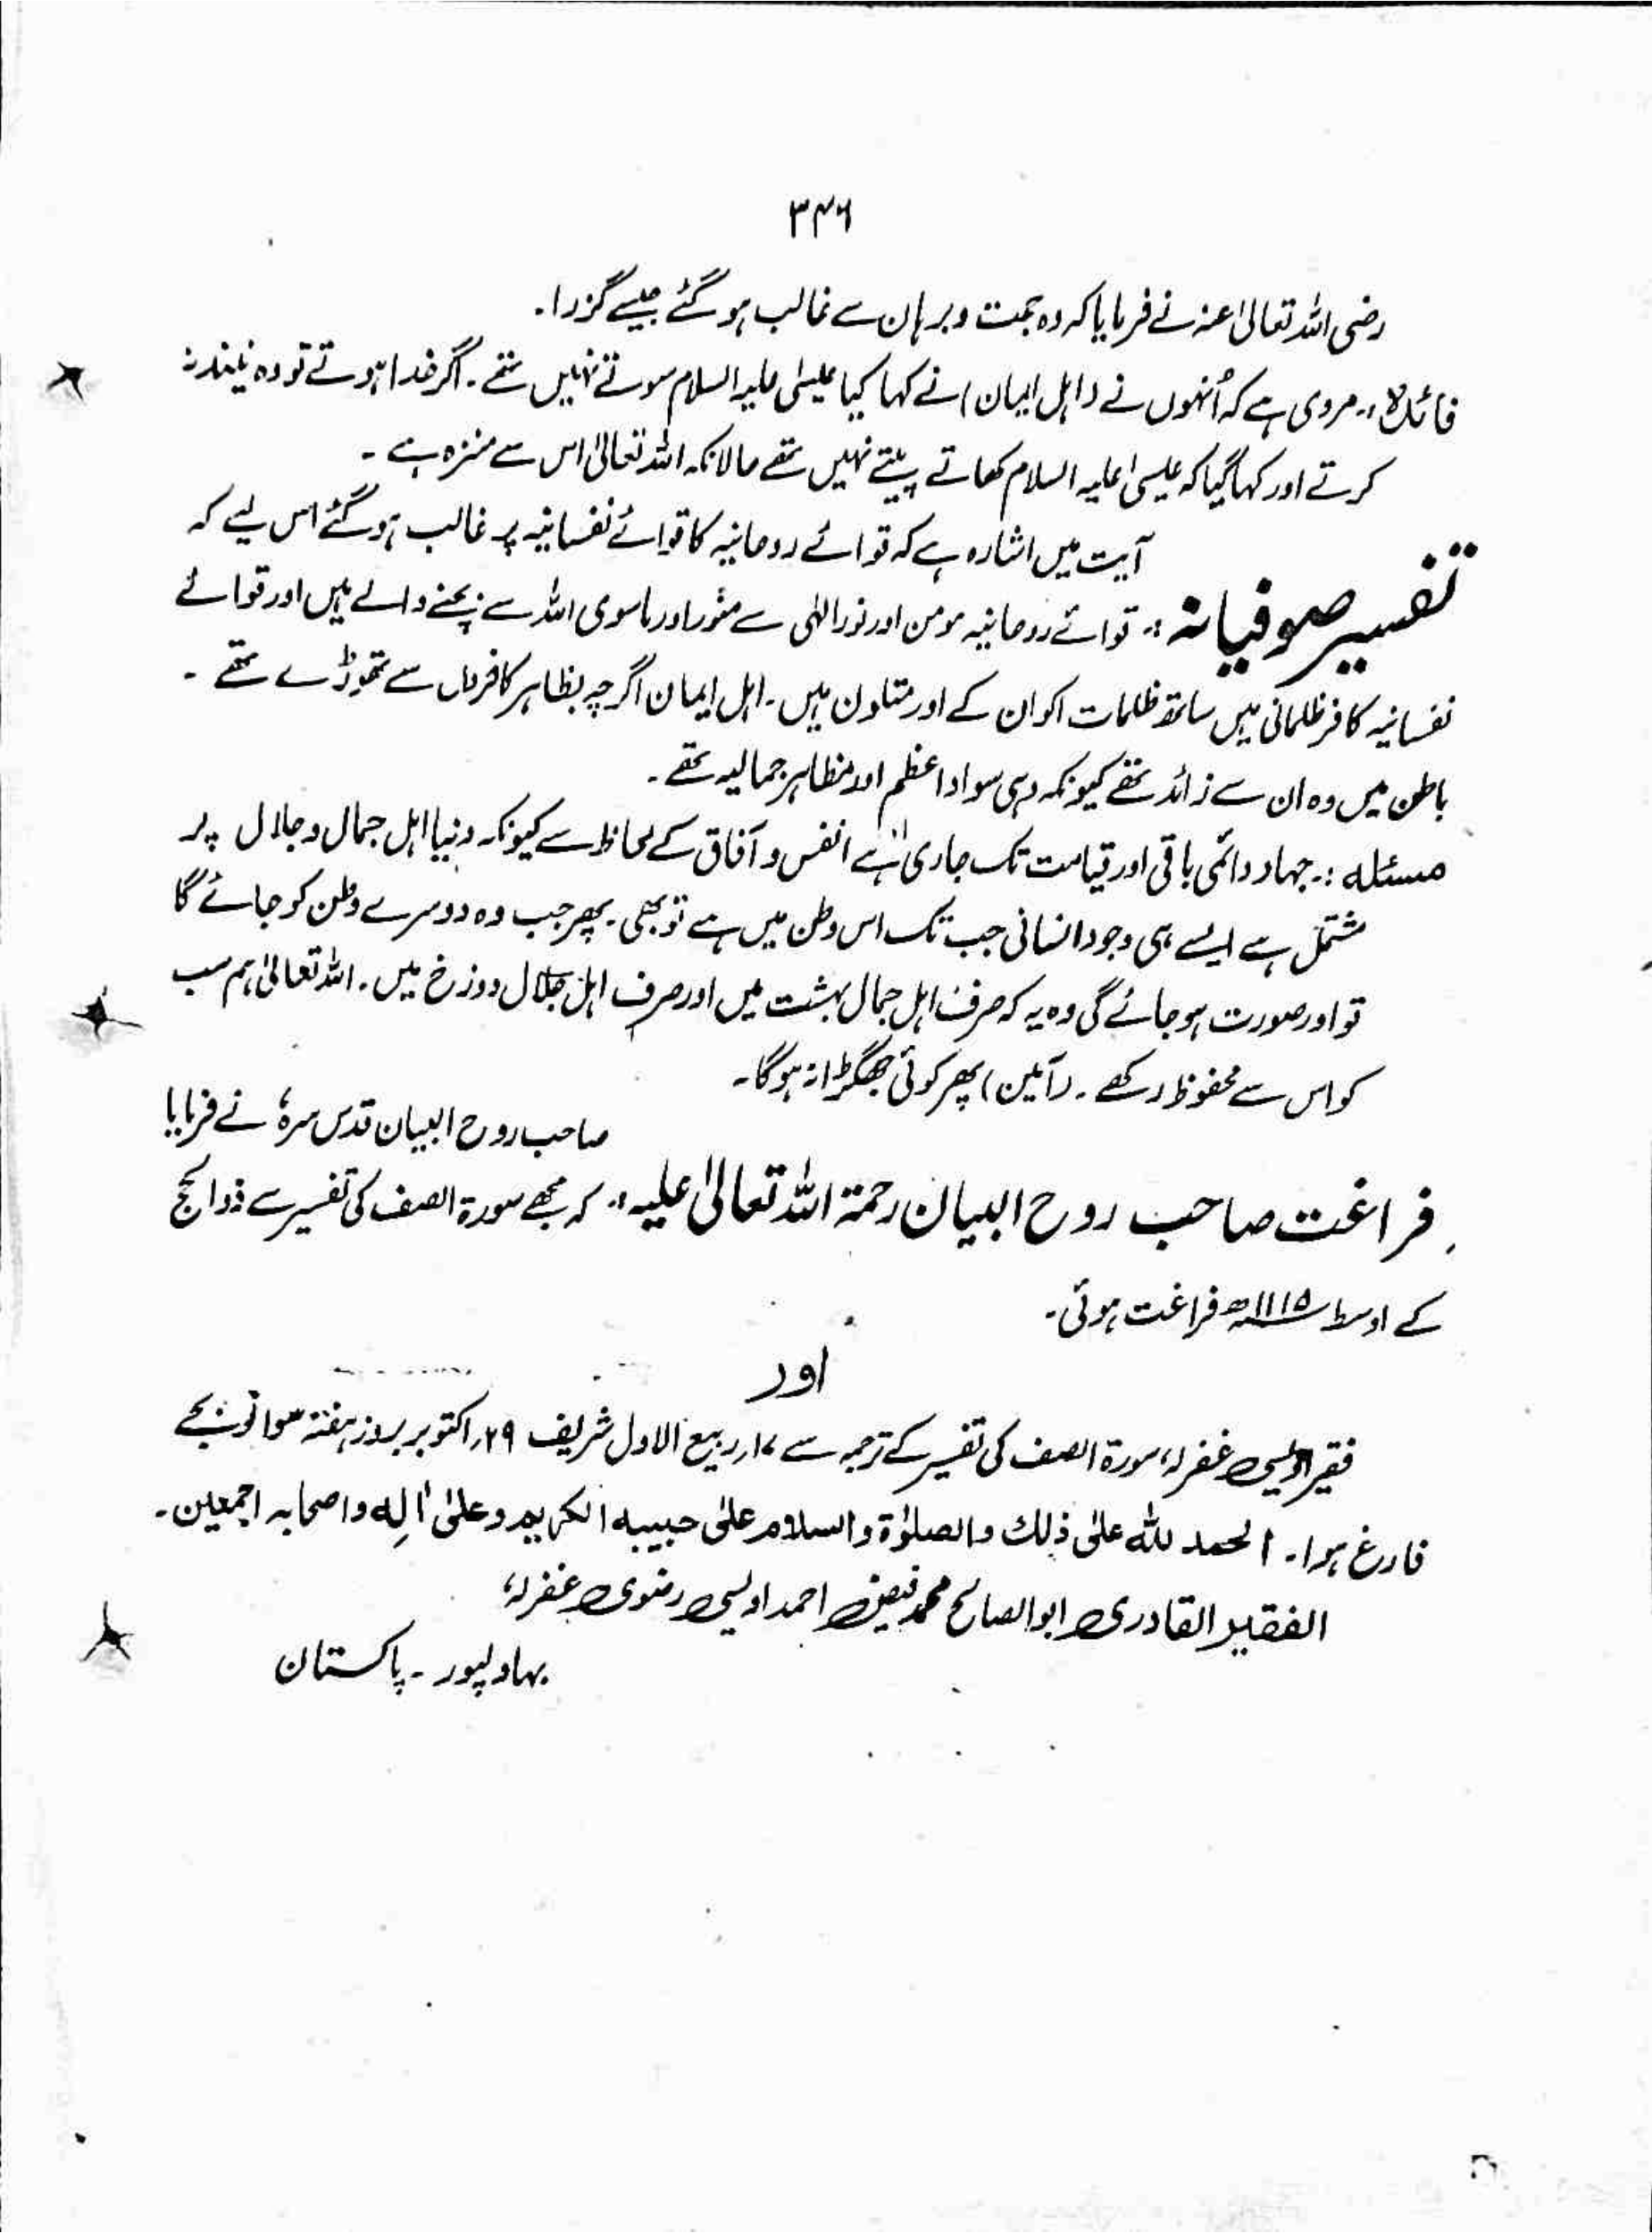 ۳۴۶
رضی اللہ تعالیٰ عنہ نے فرمایا کہ وہ حجت و برہان سے غالب ہو گئے جیسے گزرا۔
فائدہ :۔ مروی ہے کہ اُنہوں نے (اہل ایمان) نے کہا کیا عیسیٰ علیہ السلام سوتے نہیں تھے۔ اگر خدا ہوتے تو وہ نیند نہ
کرتے اور کہا گیا کہ عیسیٰ علیہ السلام کھاتے پیتے نہیں تھے حالانکہ اللہ تعالیٰ اس سے منزہ ہے ۔
آیت میں اشارہ ہے کہ قوائے روحانیہ کا قوائے نفسانیہ پر غالب ہو گئے اس لیے کہ
تفسیر صوفیانہ :۔ قوائے روحانیہ مومن اور نور الٰہی سے منور اور ماسوی اللہ سے بچنے والے ہیں اور قوائے
نفسانیہ کافر ظلمانی ہیں ساتھ ظلمات اکوان کے اور متلون ہیں۔ اہل ایمان اگرچہ بظاہر کافروں سے تھوڑے تھے ۔
باطن میں وہ ان سے زائد تھے کیونکہ وہی سواد اعظم اور مظاہر جمالیہ تھے۔
مسئلہ :۔ جہاد دائمی باقی اور قیامت تک جاری ہے انفس و آفاق کے لحاظ سے کیونکہ دنیا اہل جمال و جلال پر
مشتمل ہے ایسے ہی وجود انسانی جب تک اس وطن میں ہے تو بھی۔ پھر جب وہ دوسرے وطن کو جائے گا
تو اور صورت ہو جائے گی وہ یہ کہ صرف اہل جمال بہشت میں اور صرف اہل جلال دوزخ میں۔ اللہ تعالیٰ ہم سب
کو اس سے محفوظ رکھے ۔ (آمین) پھر کوئی جھگڑا نہ ہوگا۔
صاحب روح البیان قدس سرہٗ نے فرمایا
فراغت صاحب روح البیان رحمۃ اللہ تعالیٰ علیہ :۔ کہ مجھے سورۃ الصف کی تفسیر سے ذوالحج
کے اوسط ۱۱۱۵ھ فراغت ہوئی۔
اور
فقیر اویسی غفرلہٗ سورۃ الصف کی تفسیر کے ترجمہ سے ۱۷ ربیع الاول شریف ۲۹، اکتوبر بروز ہفتہ سوا نو بجے
فارغ ہوا۔ الحمد للہ علیٰ ذٰلک والصلوٰۃ والسلام علیٰ حبیبہ الکریم وعلیٰ اٰلِہ واصحابہ اجمعین۔
الفقیر القادری ابو الصالح محمد فیض احمد اویسی رضوی غفرلہٗ
بہاولپور ۔ پاکستان